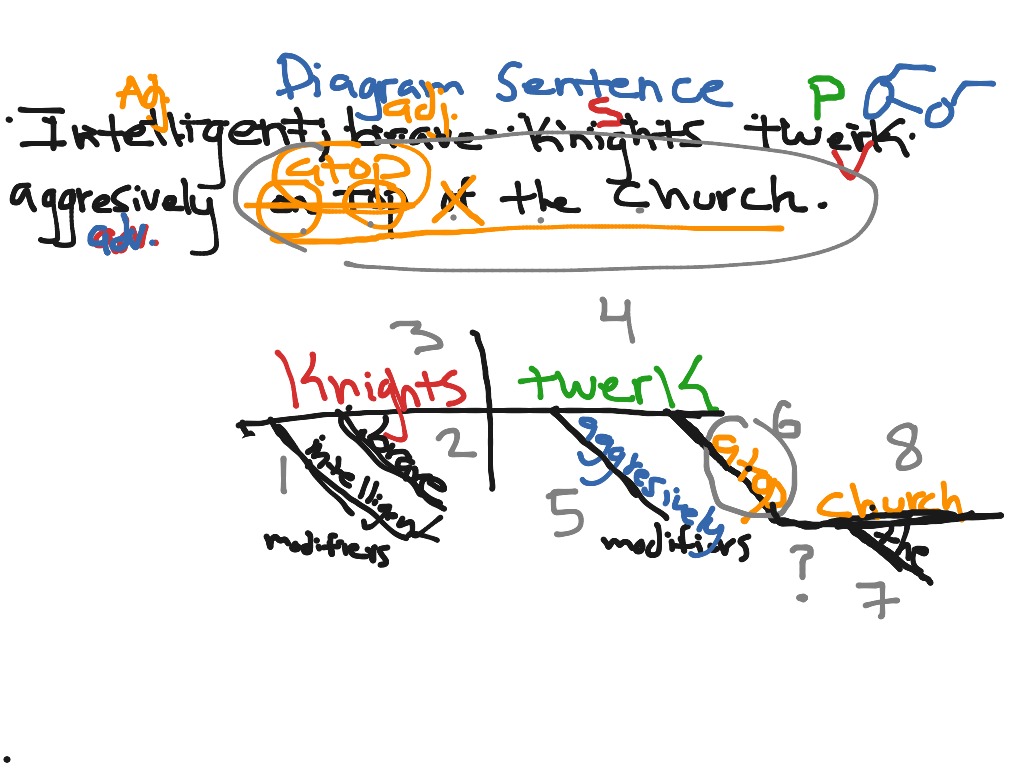 Diagram Sentence
Adj adj S P
Intelligent, brave knights twerk
V
aggresively on top of the church.
atop X
adv.
3 4
Knights twerk
1 intelligent 2 brave 5 aggresively 6 atop 8
church
modifiers modifiers ? 7 the